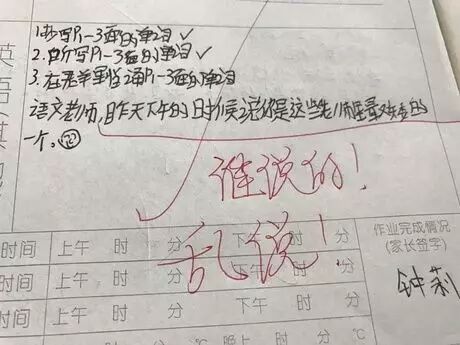 英语
1.抄写P1-3面的单词✓
2.听写P1-3面的单词✓
3.在苹果监2面P1-3面的单词
语文老师,昨天下午的时候说你是这些老师里最难看的
一个。
谁说的!
乱说!
作业完成情况
(家长签字)
钟莉
时间 上午 时 分 下午 时 分
时间 上午 时 分 下午 时 分
时间 上午 时 分 下午 时 分
℃ 晚上 时 分 ℃